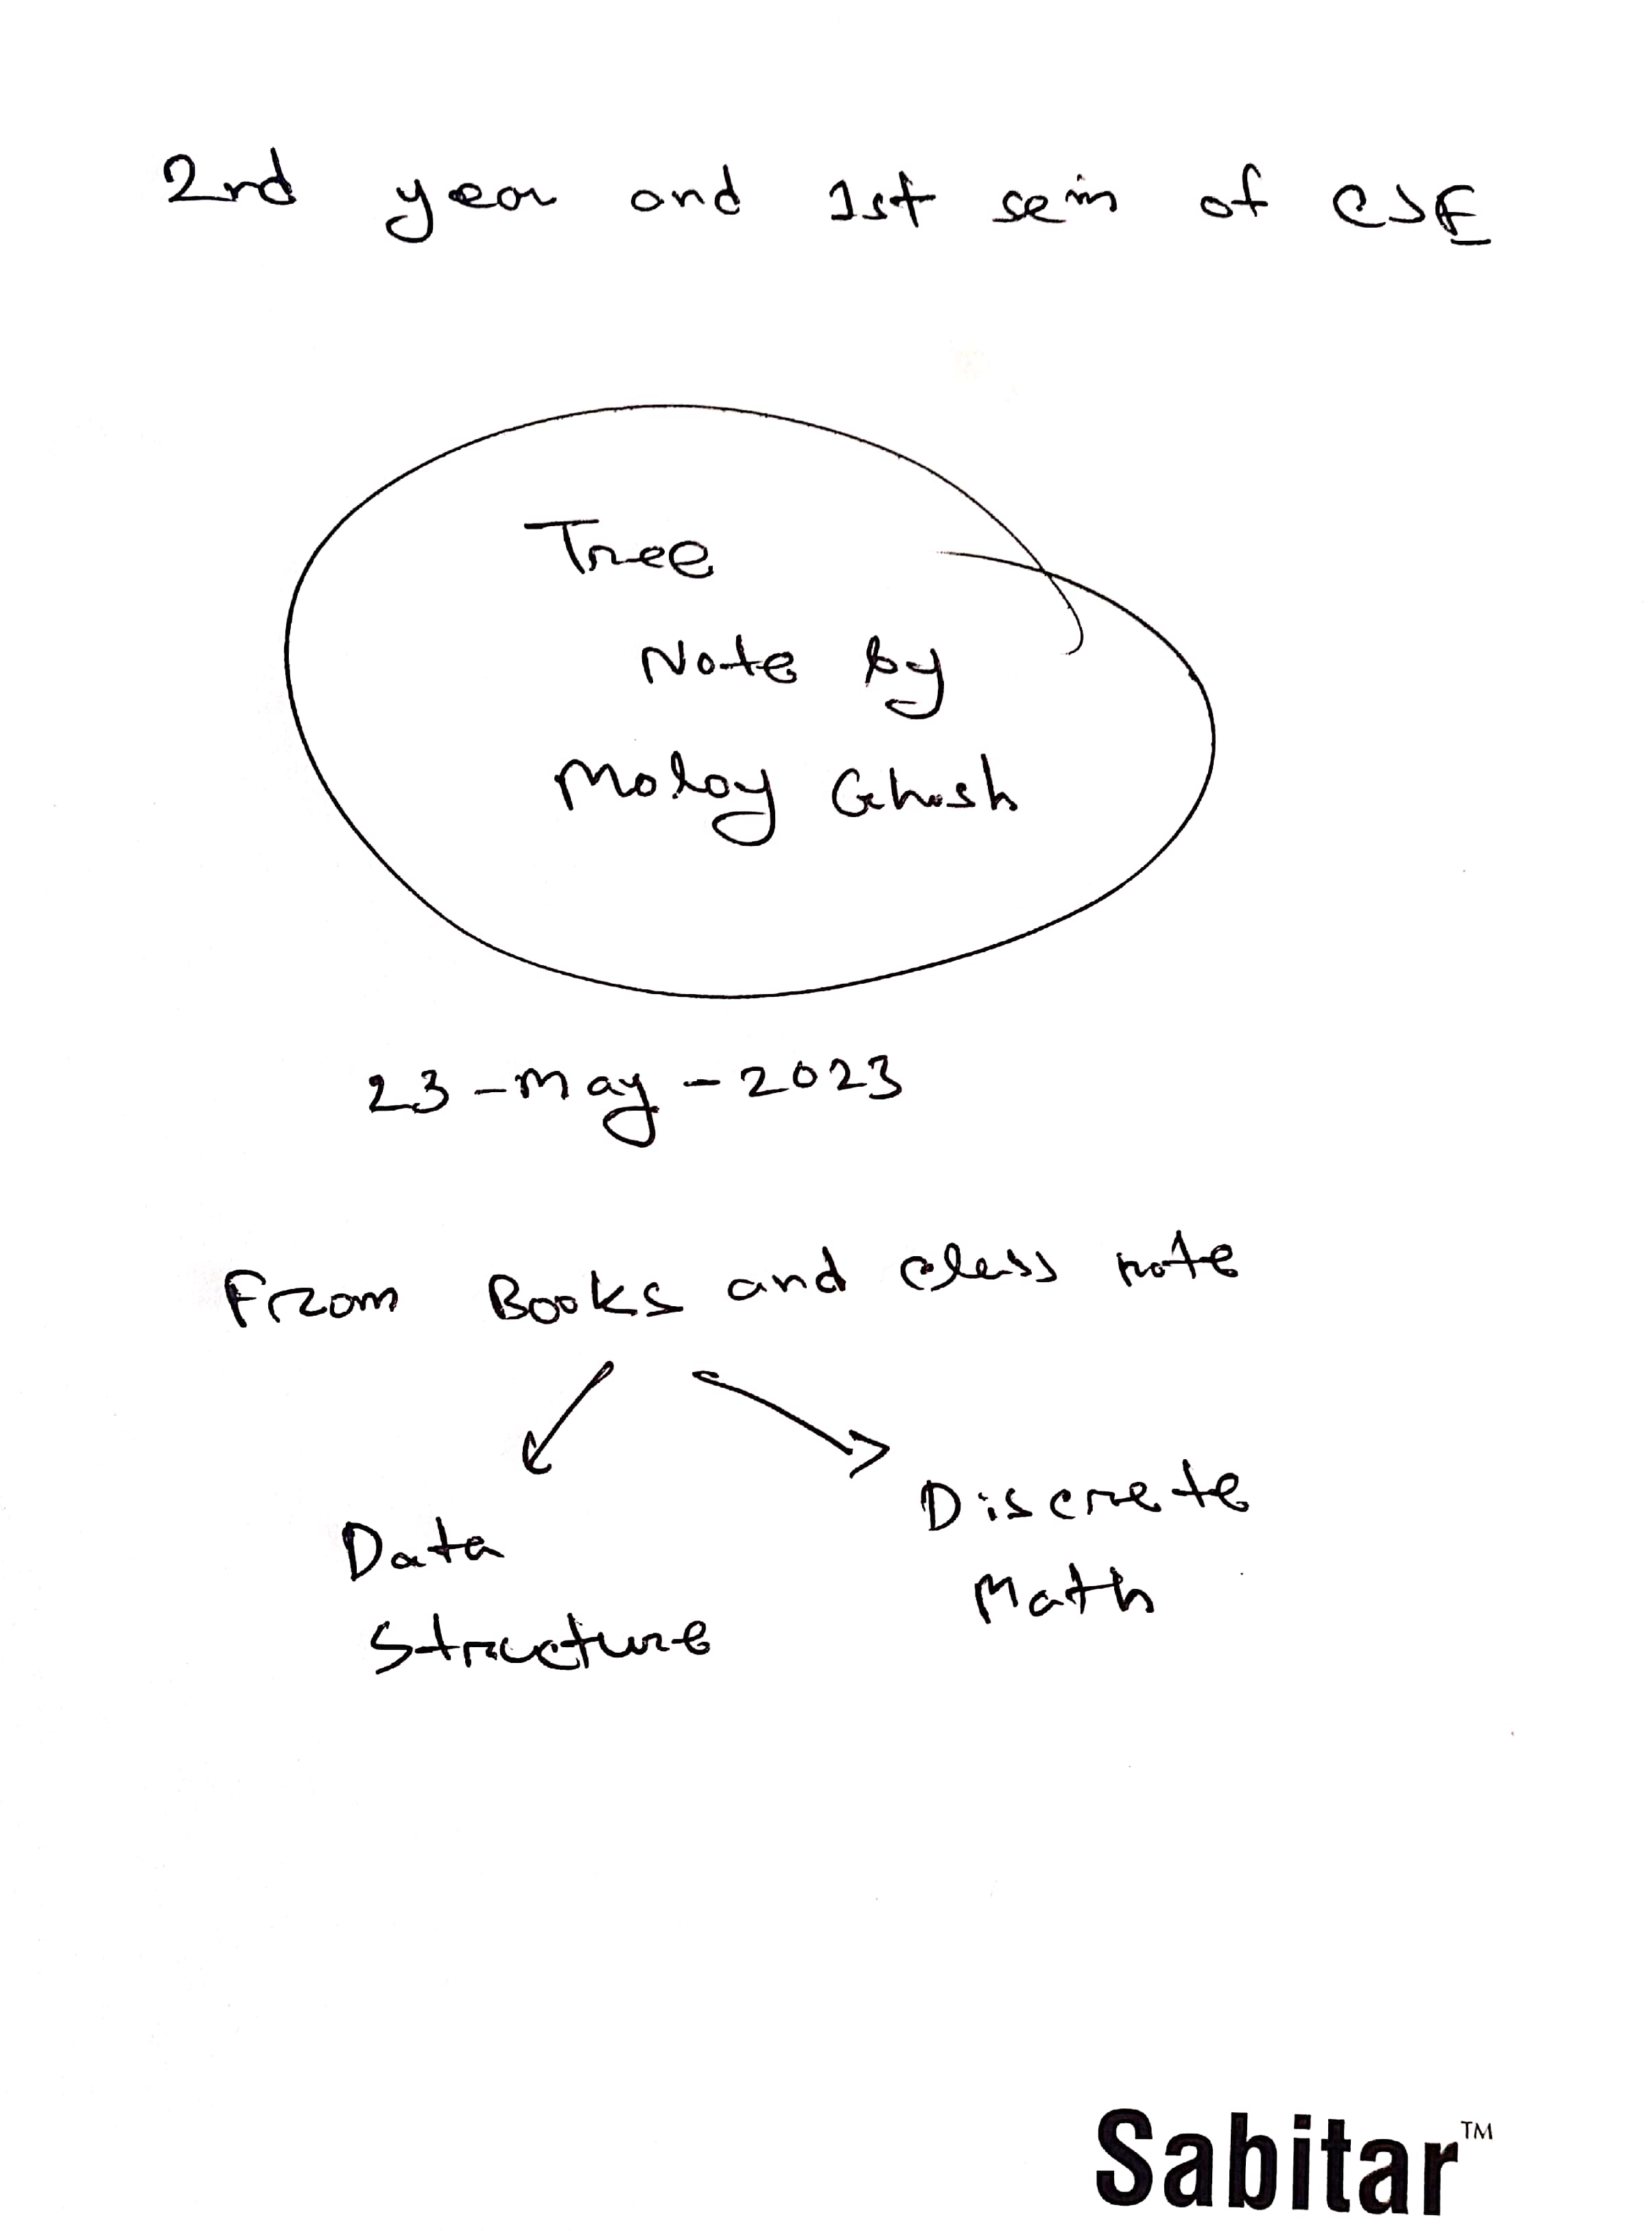 2nd year and 1st sem of CSE
Tree
Note by
Moloy Ghosh
23-May-2023
From Books and class note
Data
Structure
Discrete
Math
Sabitar™